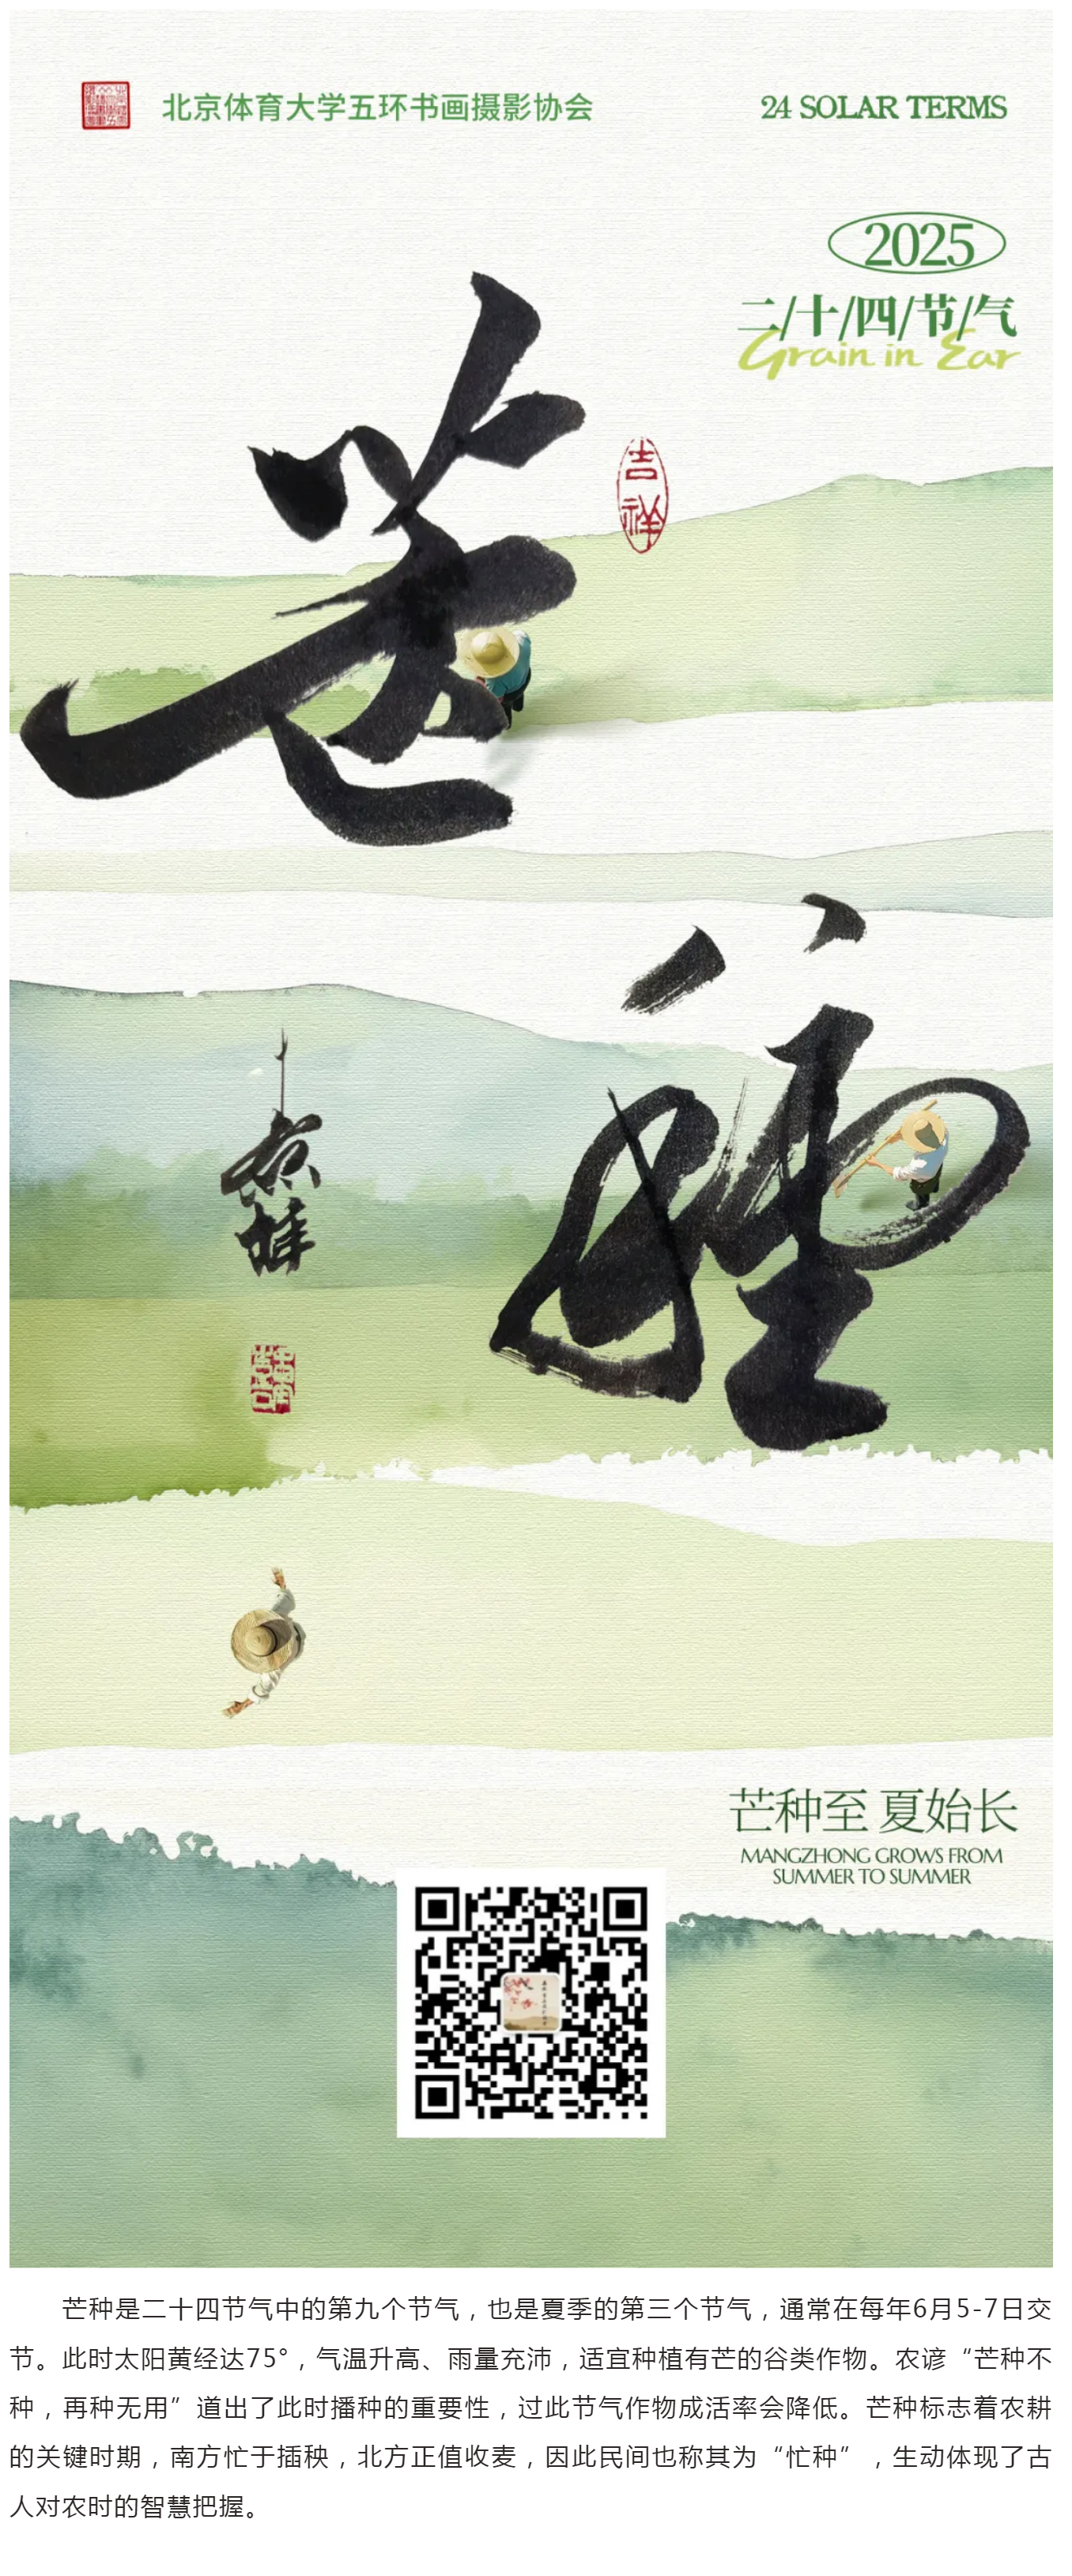 北京体育大学五环书画摄影协会
24 SOLAR TERMS
2025
二/十/四/节/气
Grain in Ear
芒
吉祥
種
芒种至 夏始长
MANGZHONG GROWS FROM
SUMMER TO SUMMER
芒种是二十四节气中的第九个节气，也是夏季的第三个节气，通常在每年6月5-7日交
节。此时太阳黄经达75°，气温升高、雨量充沛，适宜种植有芒的谷类作物。农谚“芒种不
种，再种无用”道出了此时播种的重要性，过此节气作物成活率会降低。芒种标志着农耕
的关键时期，南方忙于插秧，北方正值收麦，因此民间也称其为“忙种”，生动体现了古
人对农时的智慧把握。